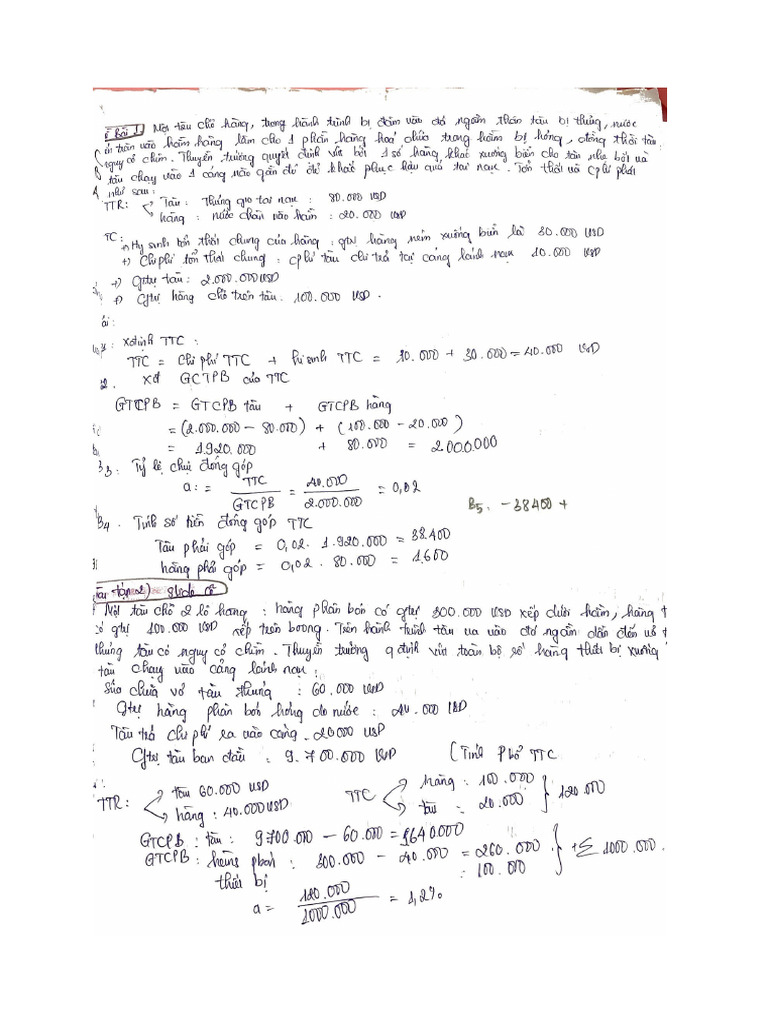 Bài 1 Một tàu chở hàng, trong hành trình bị đâm vào đá ngầm thân tàu bị thủng, nước
tràn vào hầm hàng làm cho 1 phần hàng hoá chứa trong hầm bị hỏng, đồng thời tàu
nguy cơ chìm. Thuyền trưởng quyết định vứt bớt 1 số hàng khác xuống biển cho tàu nhẹ bớt và
tàu chạy vào 1 cảng nào gần đó để khắc phục hậu quả tai nạn. Tổn thất và cphí phát
như sau:
TTR: Tàu: Thủng do tai nạn : 80.000 USD
hàng : nước chàn vào hầm : 20.000 USD
TC: +) Hy sinh tổn thất chung của hàng : gtrị hàng ném xuống biển là 30.000 USD
+) Chi phí tổn thất chung : cphí tàu chi trả tại cảng lánh nạn 10.000 USD
+) Gtrị tàu : 2.000.000 USD
+) Gtrị hàng chở trên tàu 100.000 USD.
ải:
: Xđịnh TTC :
TTC = Chi phí TTC + hi sinh TTC = 10.000 + 30.000 = 40.000 USD
2. Xđ GCTPB của TTC
GTCPB = GTCPB tàu + GTCPB hàng
= (2.000.000 - 80.000) + (100.000 - 20.000)
= 1.920.000 + 80.000 = 2000.000
B3: Tỷ lệ chịu đóng góp
a: = TTC / GTCPB = 40.000 / 2.000.000 = 0,02
B5. -38400 +
B4. Tính số tiền đóng góp TTC
Tàu phải góp = 0,02. 1.920.000 = 38.400
hàng phải góp = 0,02. 80.000 = 1,600
tập 2)
Một tàu chở 2 lô hàng : hàng phân bón có gtrị 300.000 USD xếp dưới hầm, hàng t
có gtrị 100.000 USD xếp trên boong. Trên hành trình tàu va vào đá ngầm dẫn đến vỏ t
thủng tàu có nguy cơ chìm. Thuyền trưởng qđịnh vứt toàn bộ số hàng thiết bị xuống
tàu chạy vào cảng lánh nạn :
Sửa chữa vỏ tàu thủng : 60.000 USD
Gtrị hàng phân bón hỏng do nước : 40.000 USD
Tàu trả chi phí ra vào cảng : 20000 USD
Gtrị tàu ban đầu : 9.700.000 USD (Tính Phổ TTC
TTR: tàu 60.000 USD TTC hàng : 100.000
hàng : 40.000 USD tàu : 20.000 120.000
GTCPB : tàu : 9700.000 - 60.000 = 9640.000
GTCPB : hàng phân : 300.000 - 40.000 = 260.000 1000.000.
thiết bị : 100.000
a = 120.000 / 1000.000 = 1,2%